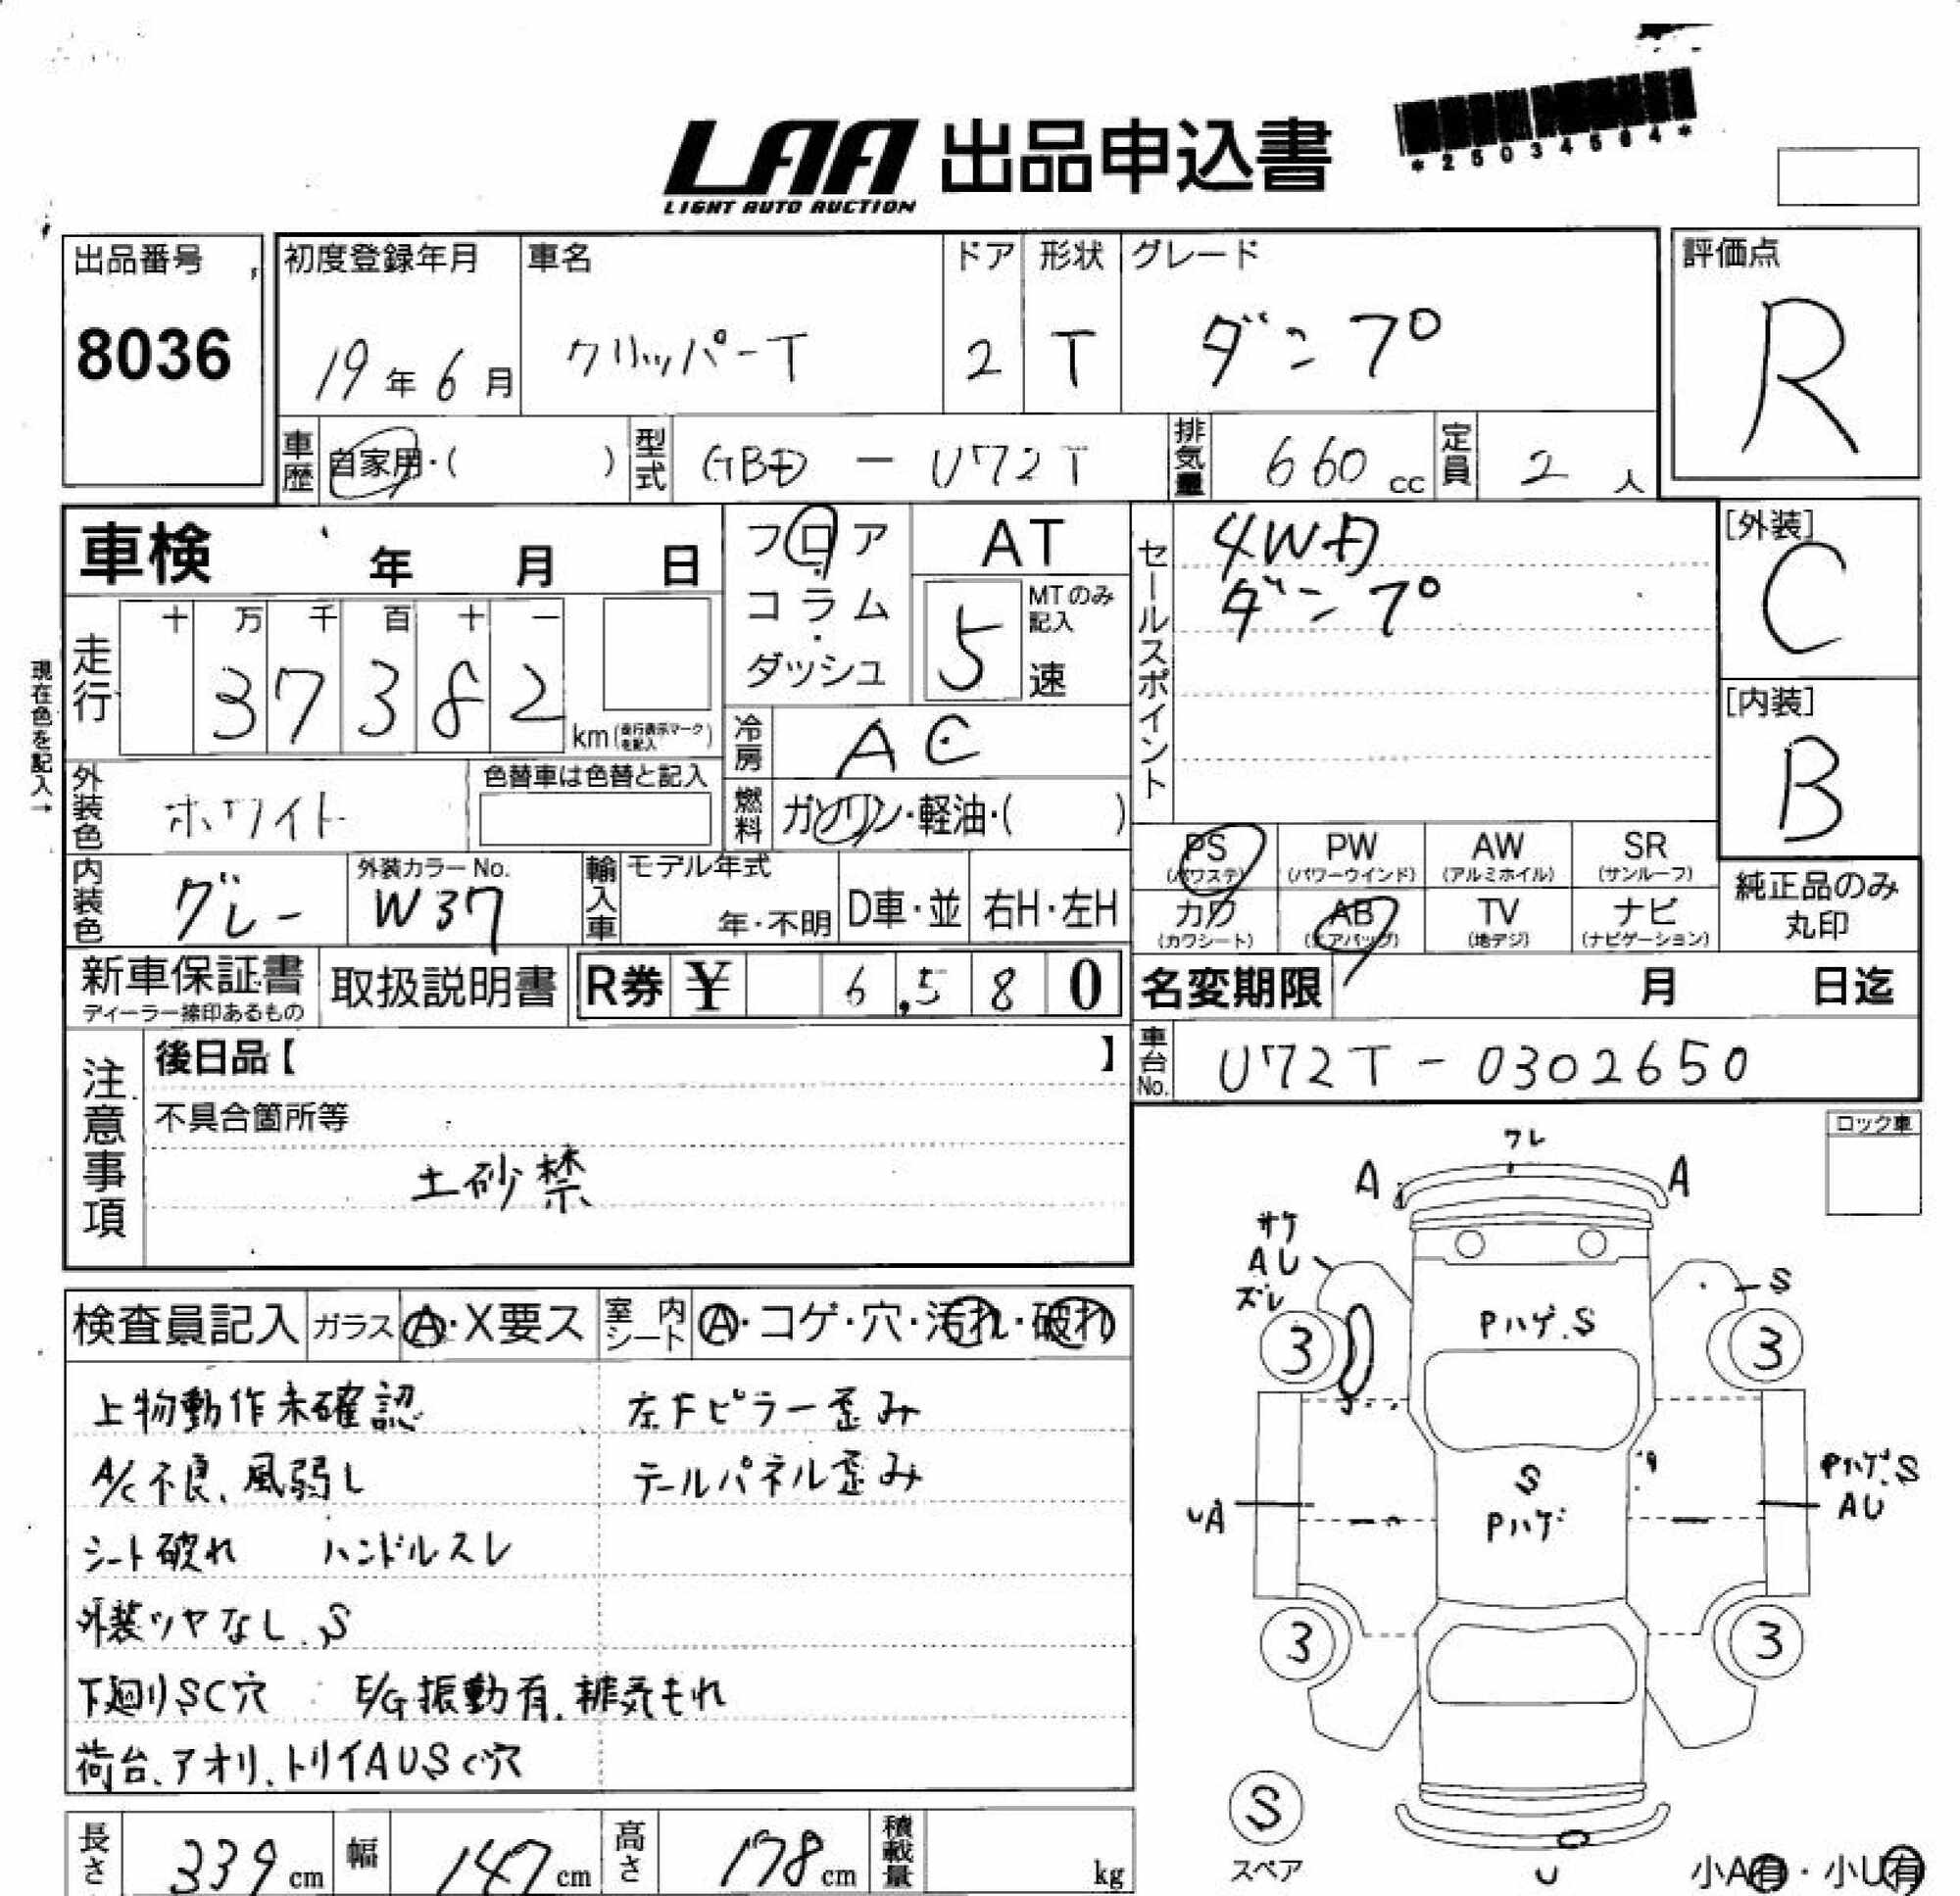 LAA 出品申込書
LIGHT AUTO AUCTION
*25034564*
出品番号
8036
初度登録年月
19年6月
車名
クリッパーT
ドア
2
形状
T
グレード
ダンプ
評価点
R
車歴 自家用・( )
型式 GBD - U72T
排気量 660 cc
定員 2 人
車検 年 月 日
フロア・コラム・ダッシュ
AT
5 MTのみ記入 速
セールスポイント
4WD
ダンプ
[外装]
C
[内装]
B
現在色を記入→
走行
十 万 千 百 十 一
3 7 3 8 2 km (走行表示マークを記入)
冷房 AC
燃料 ガソリン・軽油・( )
外装色 ホワイト
色替車は色替と記入
内装色 グレー
外装カラーNo.
W37
輸入車 モデル年式
年・不明 D車・並 右H・左H
PS (パワステ)
PW (パワーウインド)
AW (アルミホイル)
SR (サンルーフ)
カワ (カワシート)
AB (エアバッグ)
TV (地デジ)
ナビ (ナビゲーション)
純正品のみ丸印
新車保証書
ディーラー捺印あるもの
取扱説明書
R券 ¥ 6,580
名変期限 月 日迄
車台No. U72T - 0302650
注意事項
後日品【 】
不具合箇所等
土砂禁
ロック車
検査員記入 ガラス A・X要ス 室内シート A・コゲ・穴・汚れ・破れ
上物動作未確認 左Fピラー歪み
A/C不良、風弱し テールパネル歪み
シート破れ ハンドルスレ
外装ツヤなし、S
下廻りSC穴 E/G振動有、排気もれ
荷台、アオリ、トリイAUSC穴
ワレ
A A
サケ
AU
ズレ
S
Pハゲ.S
3 3
S
Pハゲ
UA
Pハゲ.S
AU
3 3
S
スペア
U
小A有・小U有
長さ 339 cm 幅 147 cm 高さ 178 cm 積載量 kg